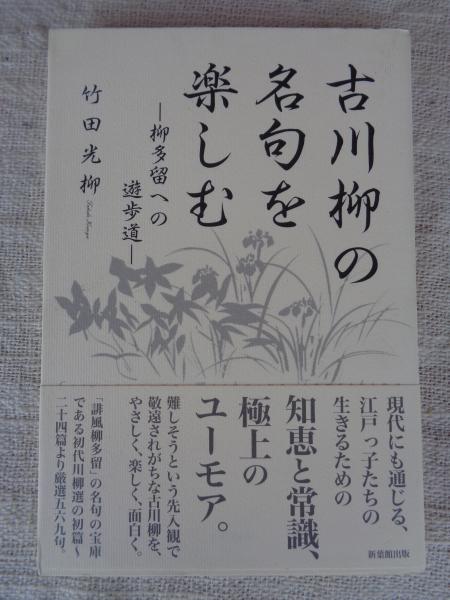 古川柳の
名句を
楽しむ
―柳多留への
遊歩道―
竹田光柳
現代にも通じる、
江戸っ子たちの
生きるための
知恵と常識、
極上の
ユーモア。
難しそうという先入観で
敬遠されがちな古川柳を、
やさしく、楽しく、面白く。
「誹風柳多留」の名句の宝庫
である初代川柳選の初篇~
二十四篇より厳選五六九句。
新葉館出版